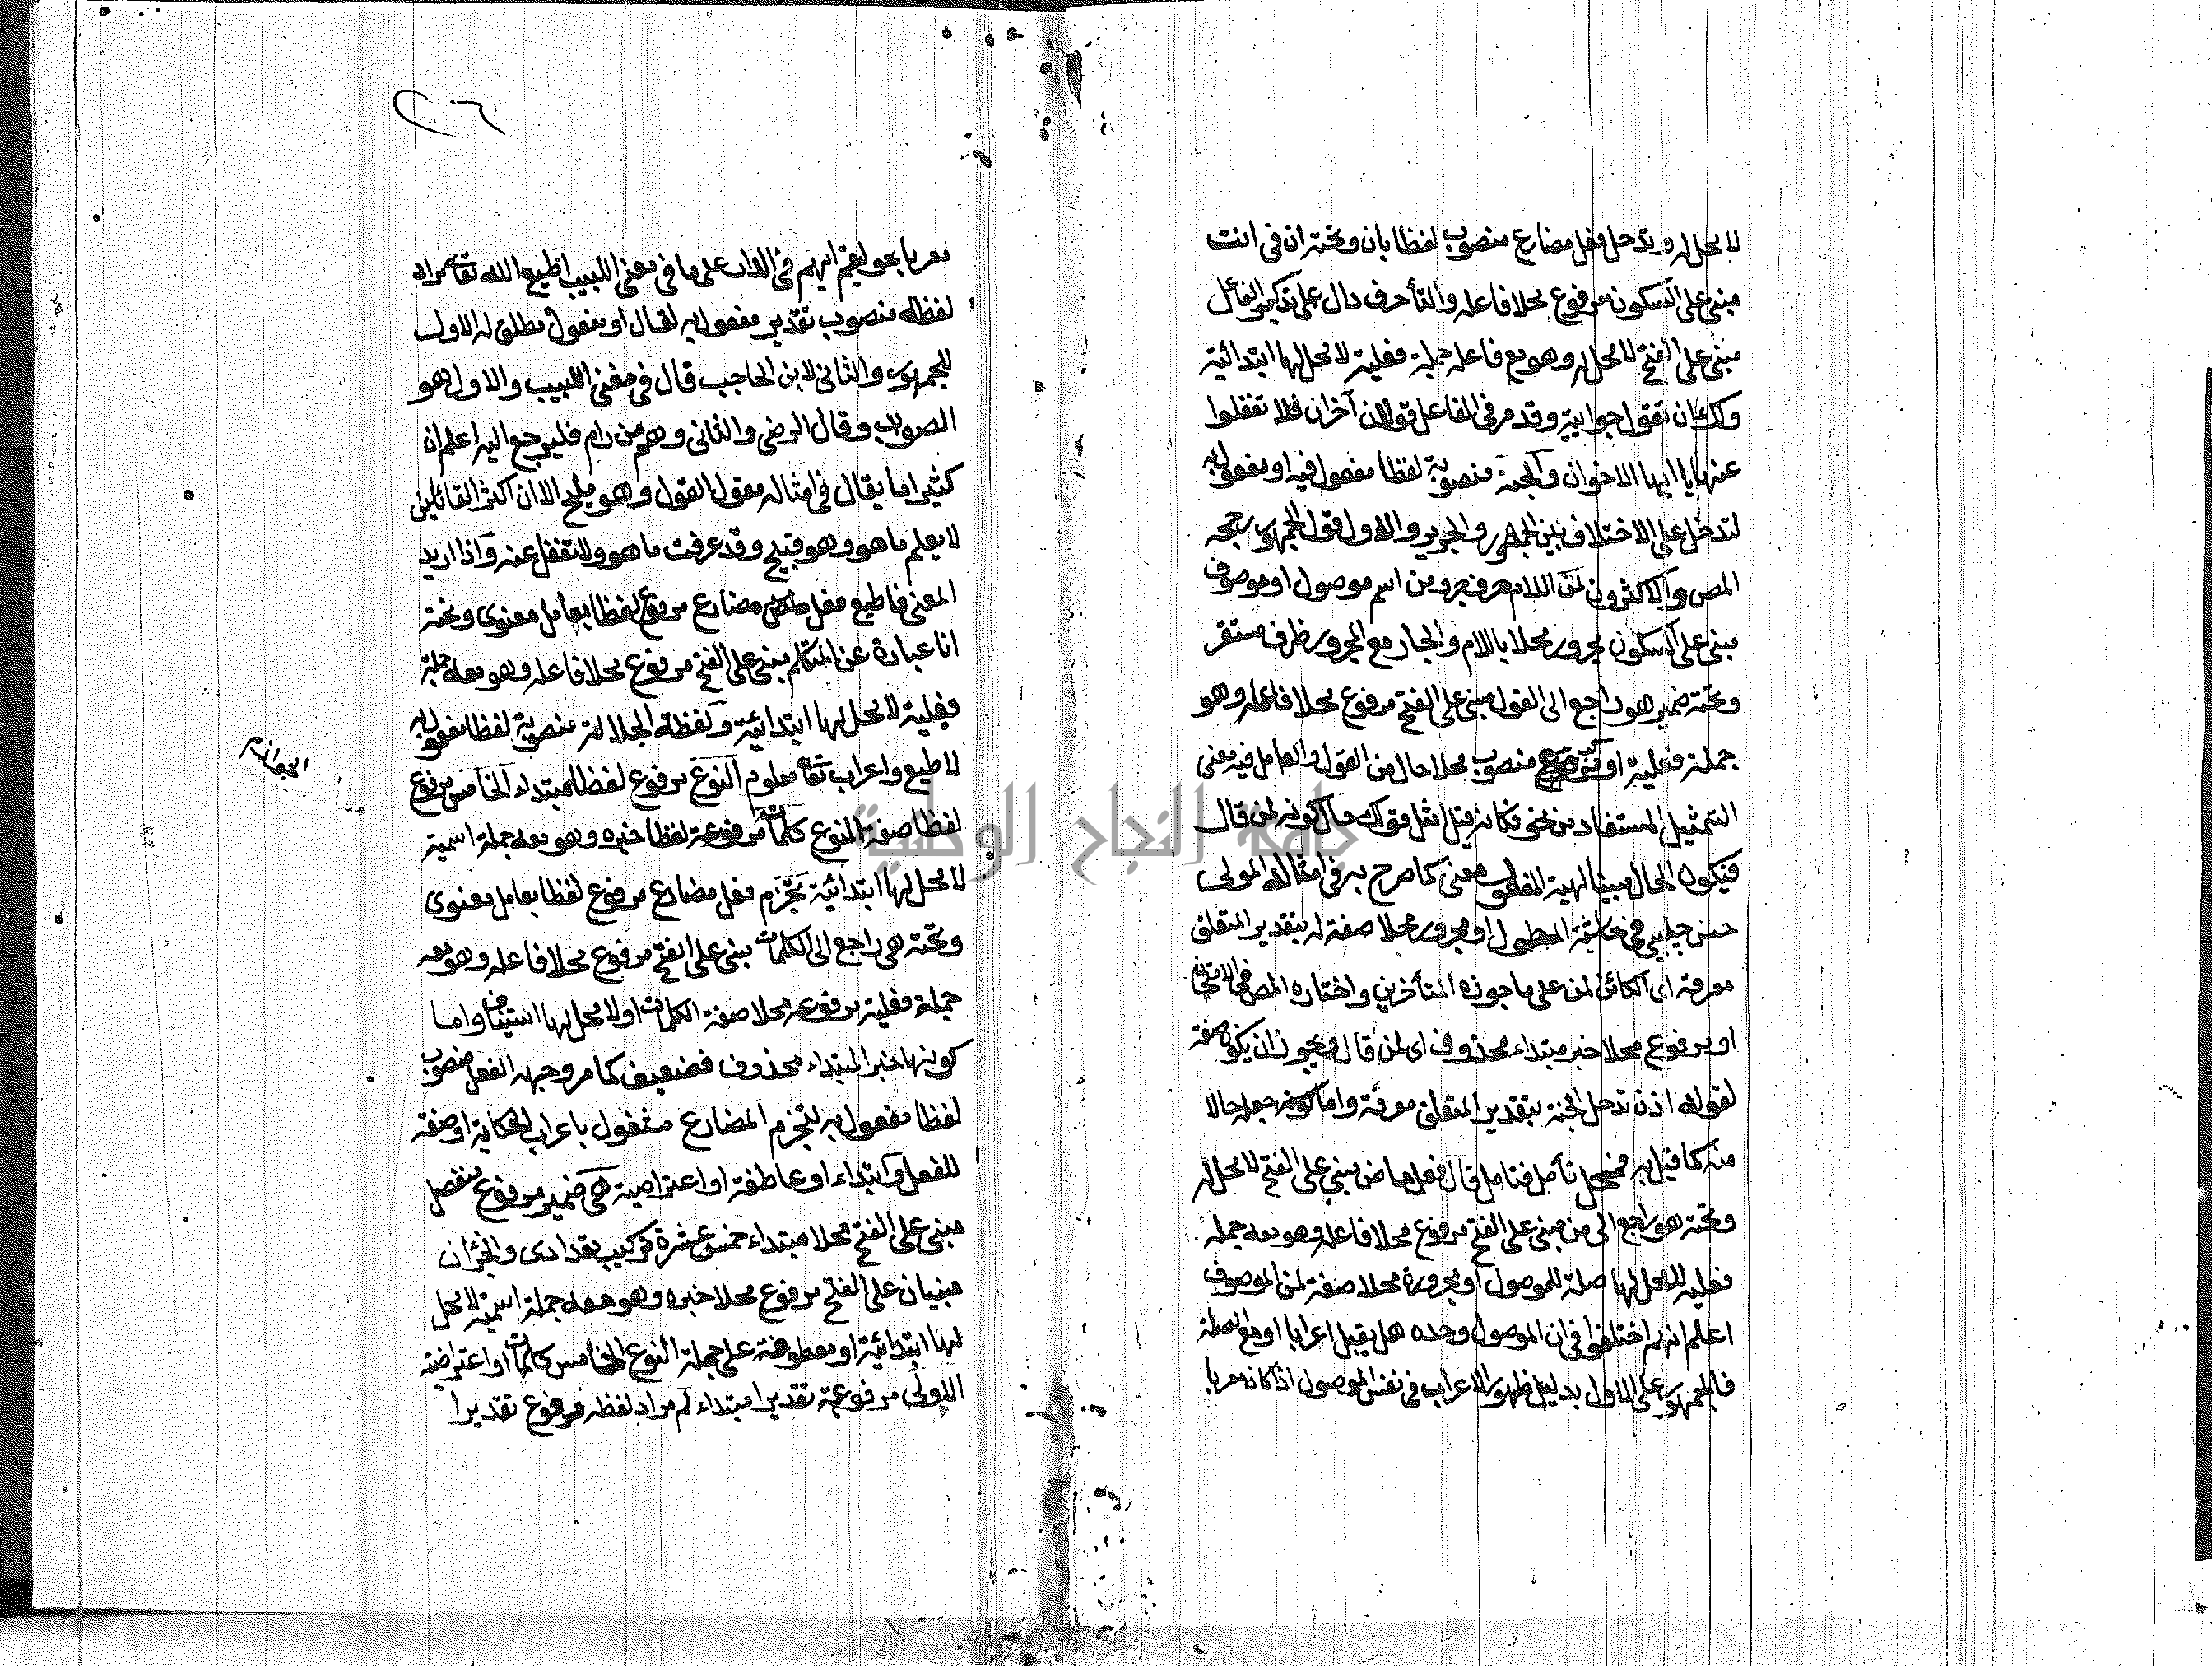 لا محل له وتدخل فعل مضارع منصوب لفظا بان وتحته ان في انت
مبنى على السكون مرفوع محلا فاعله والتأ حرف دال على تذكير الفاعل
مبنى على الفتح لا محل له وهو مع فاعله جملة فعلية لا محل لها ابتدائية
ولك ان تقول جوابية وقد مر في الفاعل قولان آخران فلا تغفلوا
عنها يا ايها الاخوان والجنة منصوبة لفظا مفعول فيه او مفعول به
لتدخل على الاختلاف بين الجمهور والجرمي والاول قول الجمهور رجحه
المص والاكثرون لمن اللام حرف جر ومن اسم موصول او موصوف
مبنى على السكون مجرور محلا باللام والجار مع المجرور ظرف مستقر
وتحته ضمير هو راجع الى القول مبنى على الفتح مرفوع محلا فاعله وهو
جملة فعلية او منصوب محلا حال من القول والعامل فيه معنى
التمثيل المستفاد من نحو فكانه قيل امثل قولك حال كونه لمن قال
فيكون الحال مبينا لهيئة المفعول معنى كما صرح به في امثاله المولى
حسن چلبي في حاشية المطول او مجرور محلا صفة له بتقدير المتعلق
معرفة اى الكائن لمن على ما جوزه المتأخرين واختاره المص في الامتحان
او مرفوع محلا خبر مبتداء محذوف اى لمن قال ويجوز ان يكون صفة
لقوله اذن تدخل الجنة بتقدير المتعلق معرفة واما كونه جعله حالا
منه كما قيل به فتأمل قال فعل ماض مبنى على الفتح لا محل له
وتحته هو راجع الى من مبنى على الفتح مرفوع محلا فاعله وهو معه جملة
فعلية لا محل لها صلة للموصول او مجرورة محلا صفة لمن الموصوف
اعلم انهم اختلفوا في ان الموصول وحده هل يقبل اعرابا او مع الصلة
فالجمهور على الاول بدليل ظهور الاعراب في نفس الموصول اذا كان معربا
٢٦
معربا نحو ليقم ايهم في الدار على ما في مغنى اللبيب اطيع الله تعالى مراد
لفظه منصوب تقدير مفعول به لقال او مفعول مطلق له الاول
للجمهور والثاني لابن الحاجب قال في مغنى اللبيب والاول هو
الصواب وقال الرضى والثاني وهم من رام فليرجع اليه اعلم ان
كثيرا ما يقال في امثاله مقول القول وهو مليح الا ان اكثر القائلين
لا يعلم ما هو وهو قبيح وقد عرفت ما هو ولا تغفل عنه واذا اريد
المعنى فاطيع فعل مضارع مرفوع لفظا بعامل معنوى وتحته
انا عبارة عن المتكلم مبنى على الفتح مرفوع محلا فاعله وهو معه جملة
فعلية لا محل لها ابتدائية ولفظة الجلالة منصوبة لفظا مفعول به
لاطيع واعراب تعالى معلوم النوع مرفوع لفظا مبتداء الخامس مرفوع
الجوازم
لفظا صفة النوع كلمات مرفوعة لفظا خبره وهو معه جملة اسمية
لا محل لها ابتدائية تجزم فعل مضارع مرفوع لفظا بعامل معنوى
وتحته هى راجع الى الكلمات مبنى على الفتح مرفوع محلا فاعله وهو معه
جملة فعلية مرفوعة محلا صفة الكلمات او لا محل لها استيناف واما
كونها خبر المبتداء محذوف فضعيف كما مر وجهه الفعل منصوب
لفظا مفعول به لتجزم المضارع مشغول باعراب الحكاية او صفة
للفعل وابتداء او عاطفة او اعتراضية هى ضمير مرفوع منفصل
مبنى على الفتح محلا مبتداء خمس عشرة تركيب تعدادى والجزأن
مبنيان على الفتح مرفوع محلا خبره وهو معه جملة اسمية لا محل
لها ابتدائية او معطوفة على جملة النوع الخامس كلمات او اعتراضية
الاولى مرفوعة تقديرا مبتداء لم مراد لفظه مرفوع تقديرا
جامعة النجاح الوطنية